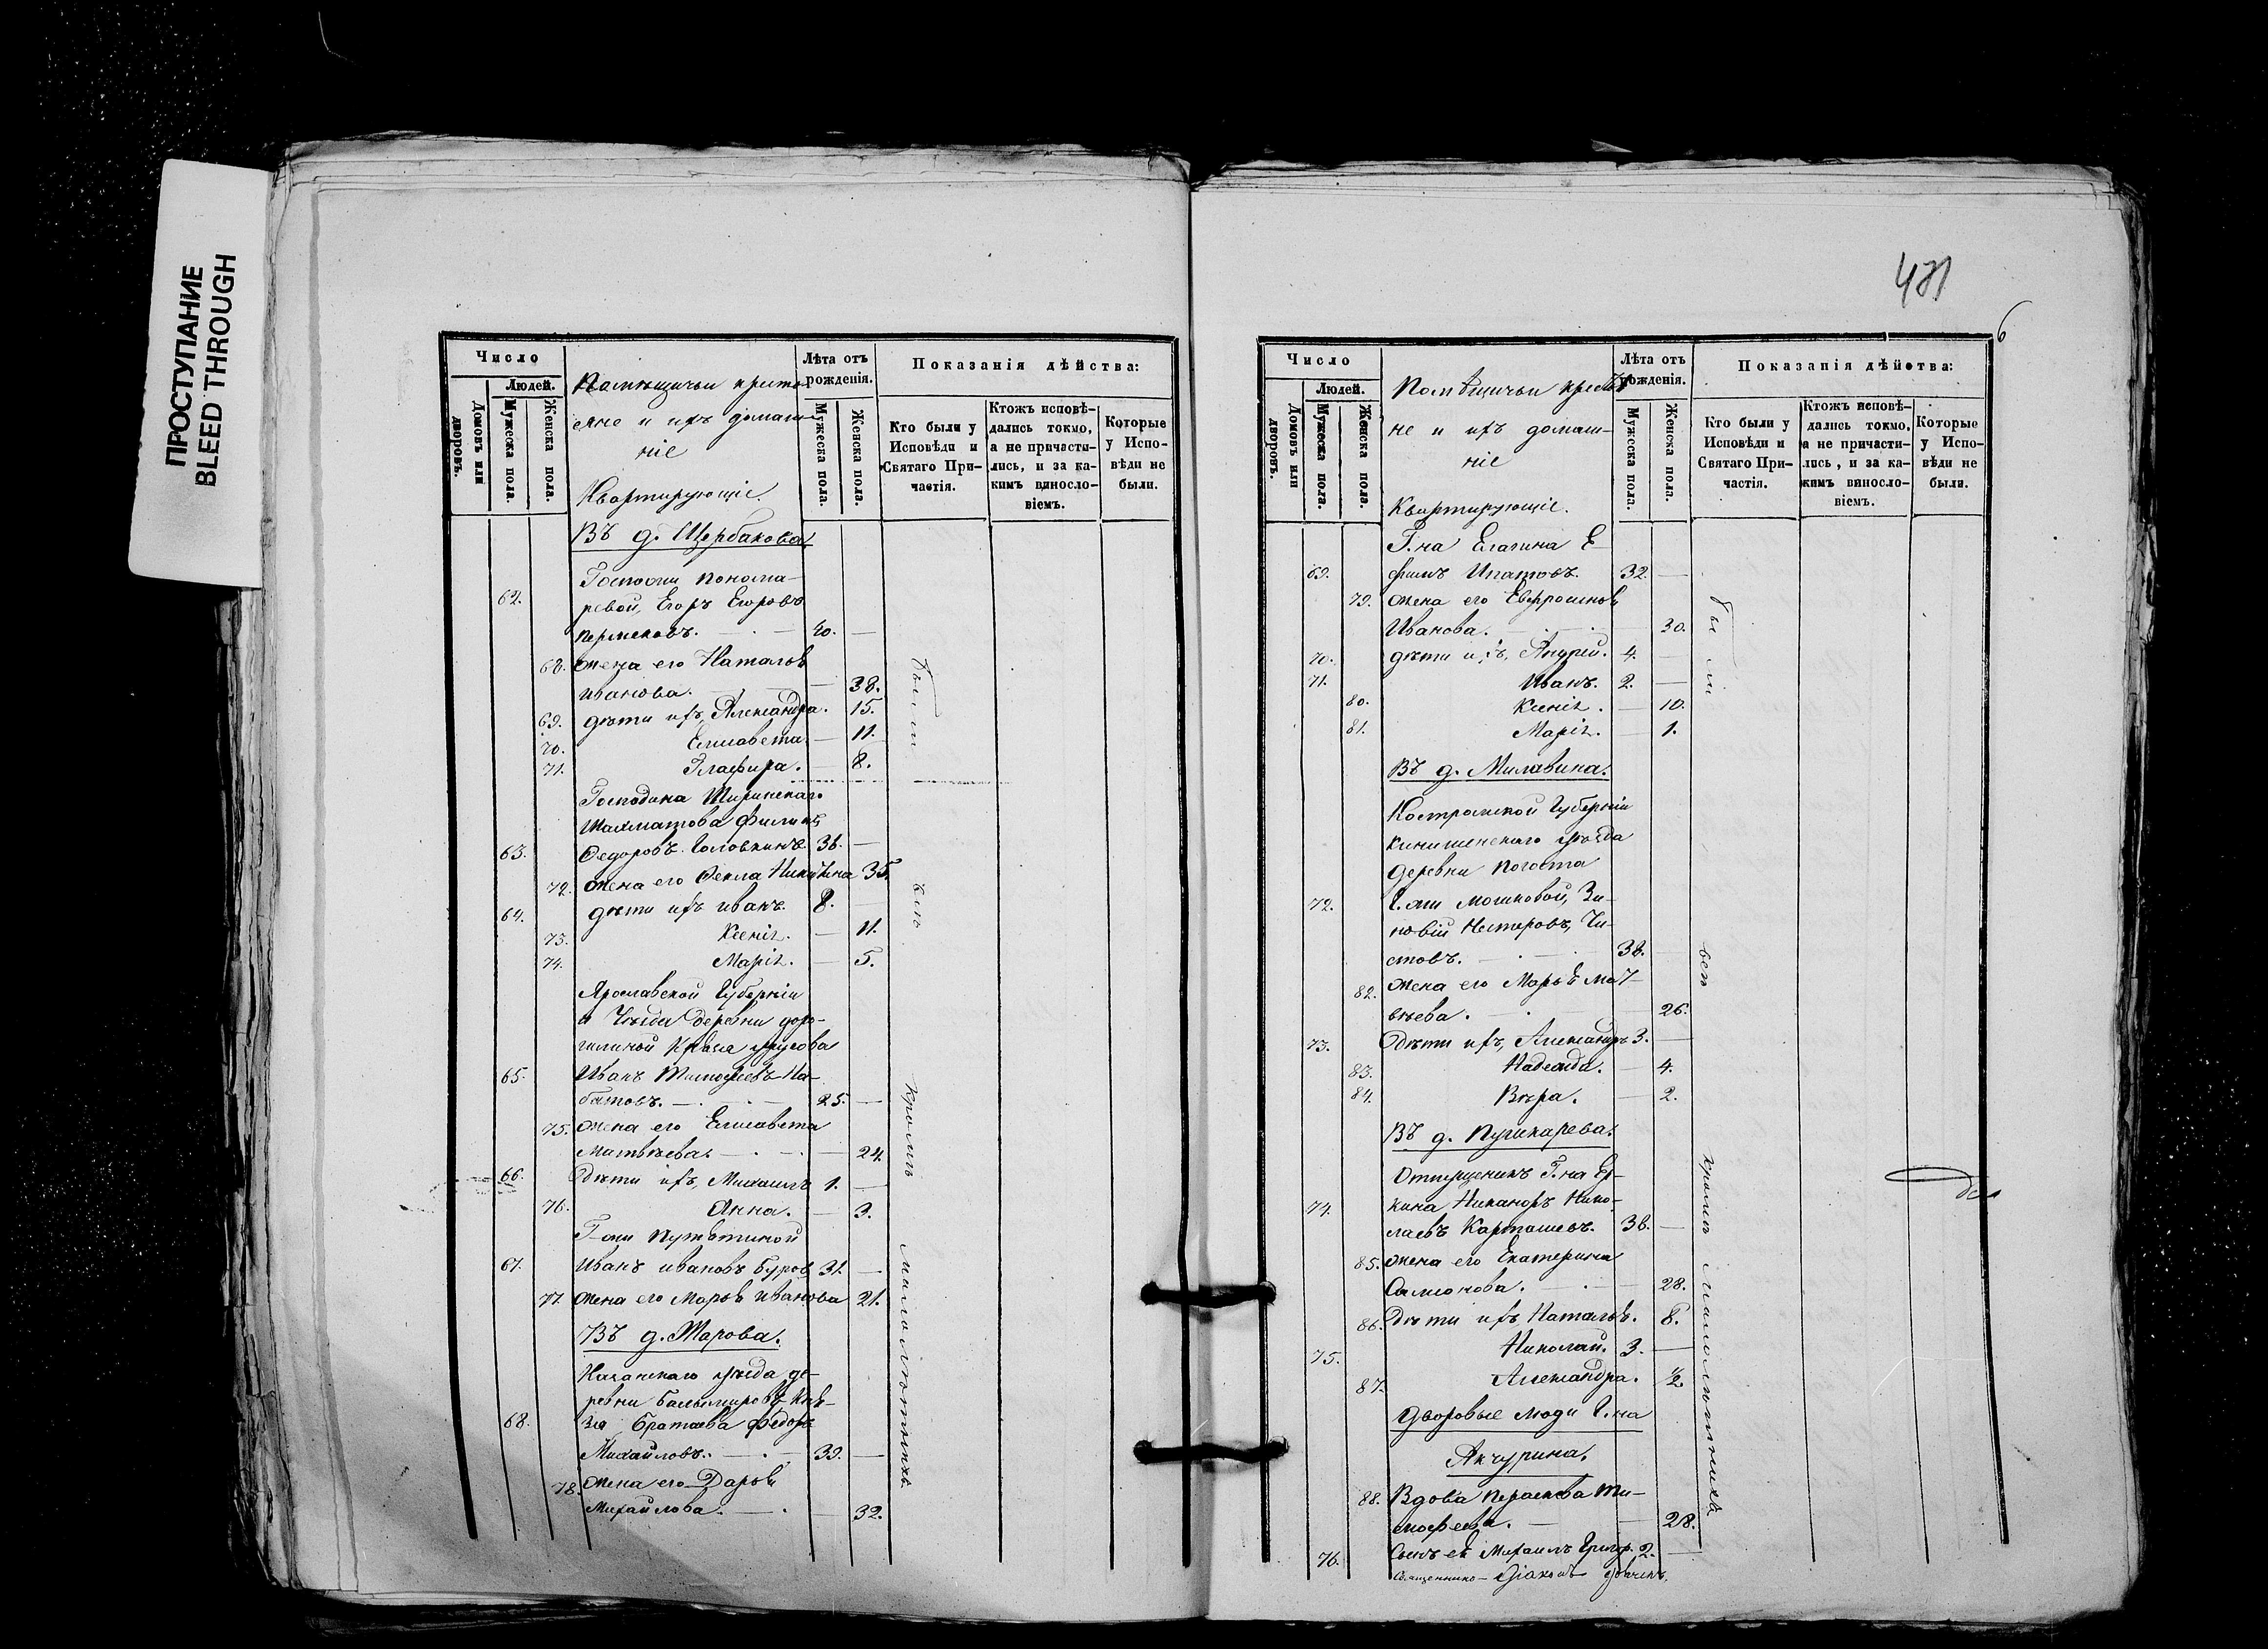 ПРОСТУПАНИЕ
BLEED THROUGH
Число
Людей.
Домовъ или дворовъ.
Мужеска пола.
Женска пола.
Помѣщичьи кресть
яне и ихъ домаш
ніе
Квартирующіе.
Лѣта отъ рожденія.
Мужеска пола.
Женска пола.
Показанія дѣйства:
Кто были у Исповѣди и Святаго Причастія.
Ктожъ исповѣдались токмо, а не причастились, и за какимъ винословіемъ.
Которые у Исповѣди не были.
Въ д. Щербакова.
Госпожи Понома-
62. ревой, Егоръ Егоровъ
40. —
68. жена его Наталья
Иванова. — 38.
69. дѣти ихъ, Александра. 15.
70. Елисавета. — 11.
71. Глафира. — 8.
Господина Ширинскаго
Шахматова Филипъ
63. Ѳедоровъ Головкинъ. 36. —
72. жена его Ѳекла Никитина 35.
64. дѣти ихъ Иванъ. 8. —
73. Ксенія. — 11.
74. Марія. — 5.
Ярославской Губерніи
и Уѣзда деревни
Князя Урусова
65. Иванъ Тимофеевъ
25. —
75. жена его Елисавета
Матвѣева. — 24.
66. Дѣти ихъ, Михаилъ 1. —
76. Анна. — 3.
Г-жи Путятиной
67. Иванъ Ивановъ Буров 31. —
77. жена его Марья Иванова 21.
Въ д. Жарова.
Казанскаго уѣзда де-
ревни Кня-
68. зя Федоръ
Михайловъ. — 39. —
78. жена его Дарья
Михайлова. — 32.
Были
всѣ
кромѣ
малолѣтнихъ.
481
6
Число
Людей.
Домовъ или дворовъ.
Мужеска пола.
Женска пола.
Помѣщичьи крестья
не и ихъ домаш-
ніе
Квартирующіе.
Лѣта отъ рожденія.
Мужеска пола.
Женска пола.
Показанія дѣйства:
Кто были у Исповѣди и Святаго Причастія.
Ктожъ исповѣдались токмо, а не причастились, и за какимъ винословіемъ.
Которые у Исповѣди не были.
Г.на Елагина Е-
69. фимъ Ипатовъ. 32. —
79. жена его Евфросинья
Иванова. — 30.
70. дѣти ихъ, Андрей. 4. —
71. Иванъ. 2. —
80. Ксенія. — 10.
81. Марія. — 1.
Въ д. Милавина.
Костромской Губерніи
Кинишемскаго уѣзда
деревни Погоста
72. Г.жи Зи-
новій Нестеровъ, Чи-
стовъ. 38.
82. жена его Марья Мат-
вѣева. — 26.
73. Дѣти ихъ, Александръ 3. —
83. Надежда. — 4.
84. Вѣра. — 2.
Въ д. Пушкарева.
Отпущеникъ Г.на Ер-
74. кина Никаноръ Нико-
лаевъ Карташевъ. 36. —
85. жена его Екатерина
28.
86. Дѣти ихъ Наталья. 8.
75. Николай. 3. —
87. Александра. ½
Дворовые люди Г.на
Акчурина.
88. Вдова Ти-
мофеева. — 28.
76. Сынъ её Михаилъ Григор. 2. —
Были
всѣ
кромѣ малолѣтнихъ.
Священнико- Діаконъ